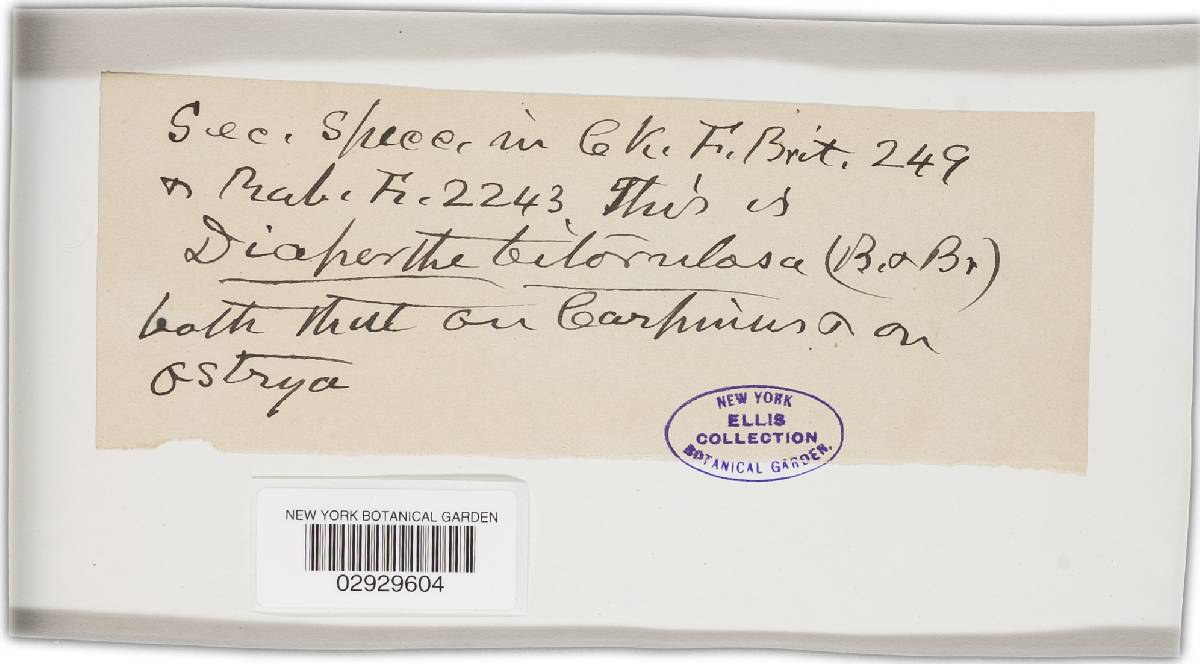 Sec. Spece, in Ck. F. Brit. 249
& Rab. F. 2243. This is
Diaporthe bitorulosa (B. & Br)
both that on Carpinus & on
Ostrya
NEW YORK
ELLIS
COLLECTION
BOTANICAL GARDEN.
NEW YORK BOTANICAL GARDEN
02929604